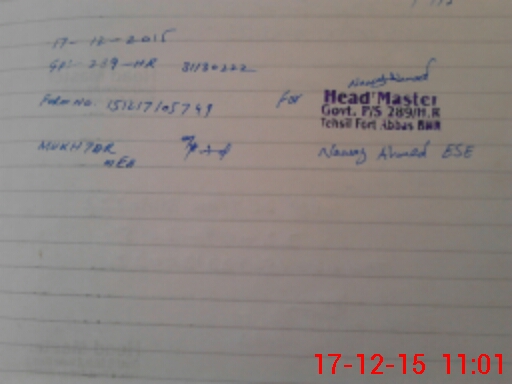 17-12-2015
GPS 289-HR 31130222
Form No. 151217105749
For
Nawaz Ahmed
Head Master
Govt. P/S 289/H.R
Tehsil Fort Abbas BWN
MUKHTAR
MEA
Nawaz Ahmed ESE
17-12-15 11:01